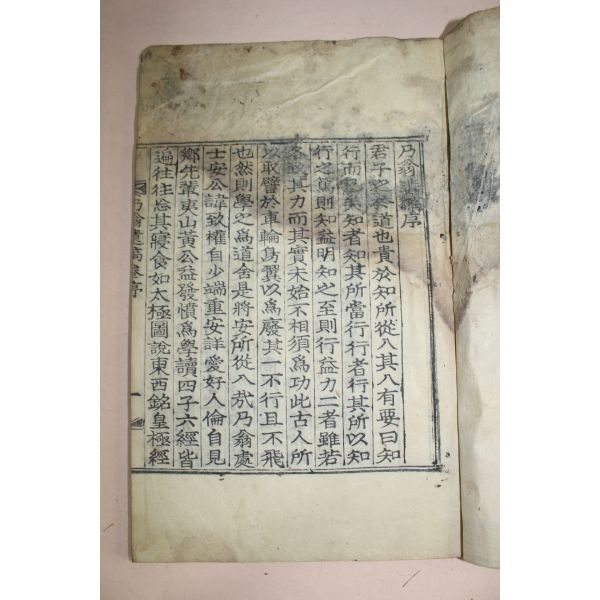 乃翁遺稿序
君子之於道也貴於知所從入其入有要曰知
行而已矣知者知其所當行行者行其所以知
行之篤則知益明知之至則行益力二者雖若
各致其力而其實未始不相須爲功此古人所
以取譬於車輪鳥翼以爲廢其一不行且不飛
也然則學之爲道舍是將安所從入哉乃翁處
士安公諱致權自少端重安詳愛好人倫自見
鄉先輩夷山黃公益發憤爲學讀四子六經皆
遍往往忘其寢食如太極圖說東西銘皇極經
乃翁遺稿 序 一